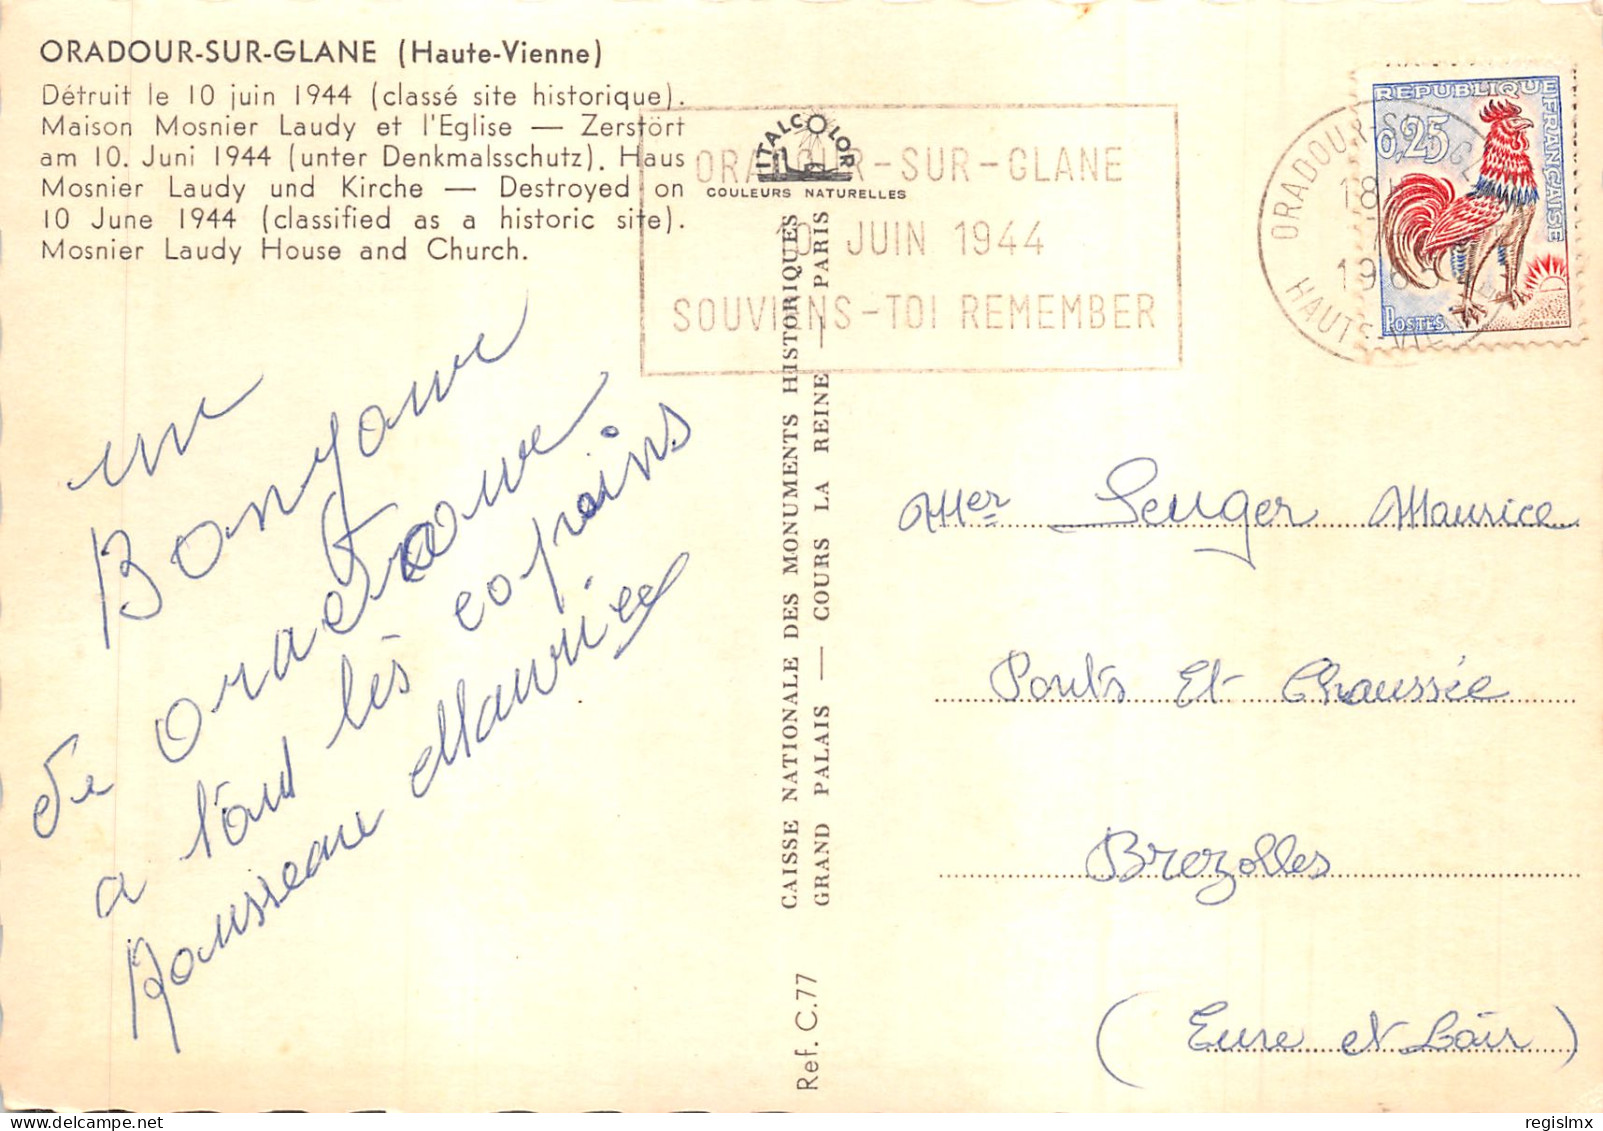 ORADOUR-SUR-GLANE (Haute-Vienne)
Détruit le 10 juin 1944 (classé site historique).
Maison Mosnier Laudy et l'Eglise — Zerstört
am 10. Juni 1944 (unter Denkmalsschutz). Haus
Mosnier Laudy und Kirche — Destroyed on
10 June 1944 (classified as a historic site).
Mosnier Laudy House and Church.
ITALCOLOR
COULEURS NATURELLES
ORADOUR-SUR-GLANE
10 JUIN 1944
SOUVIENS-TOI REMEMBER
ORADOUR-SUR-GLANE
18
HAUTE-VIENNE
REPUBLIQUE FRANÇAISE
0,25
POSTES
DECARIS
un
Bonjour
de oradour
a tout lês copains
Rousseau Maurice
CAISSE NATIONALE DES MONUMENTS HISTORIQUES
GRAND PALAIS — COURS LA REINE — PARIS
Ref. C.77
Mer Leuger Maurice
Ponts Et Chaussée
Brezolles
(Eure et Loir)
regislmx